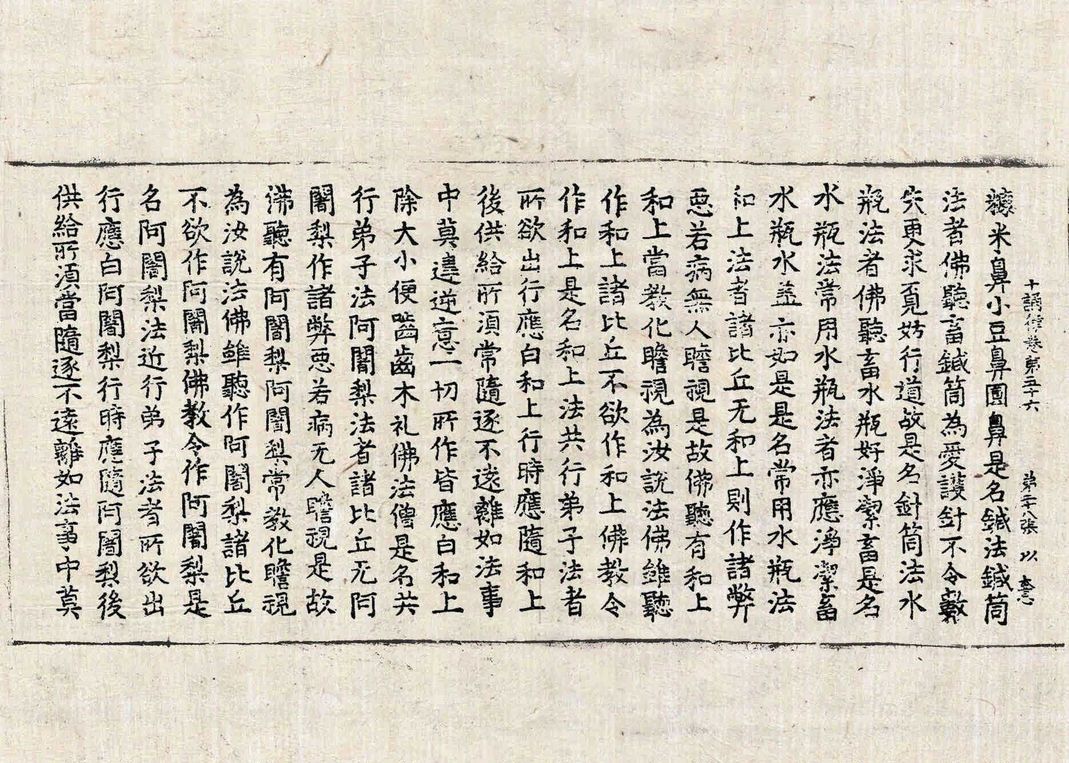 十誦律卷第五十六　第二十八張　以
𥽦米鼻小豆鼻圓鼻是名鍼法鍼筒
法者佛聽畜鍼筒為愛護針不令數
失更求覓妨行道故是名針筒法水
瓶法者佛聽畜水瓶好淨潔畜是名
水瓶法常用水瓶法者亦應淨潔畜
水瓶水盖亦如是是名常用水瓶法
和上法者諸比丘无和上則作諸弊
惡若病無人瞻視是故佛聽有和上
和上當教化瞻視為汝說法佛雖聽
作和上諸比丘不欲作和上佛教令
作和上是名和上法共行弟子法者
所欲出行應白和上行時應隨和上
後供給所湏常隨逐不遠離如法事
中莫違逆意一切所作皆應白和上
除大小便嚙齒木礼佛法僧是名共
行弟子法阿闍梨法者諸比丘无阿
闍梨作諸弊惡若病无人瞻視是故
佛聽有阿闍梨阿闍梨常教化瞻視
為汝說法佛雖聽作阿闍梨諸比丘
不欲作阿闍梨佛教令作阿闍梨是
名阿闍梨法近行弟子法者所欲出
行應白阿闍梨行時應隨阿闍梨後
供給所湏當隨逐不遠離如法事中莫